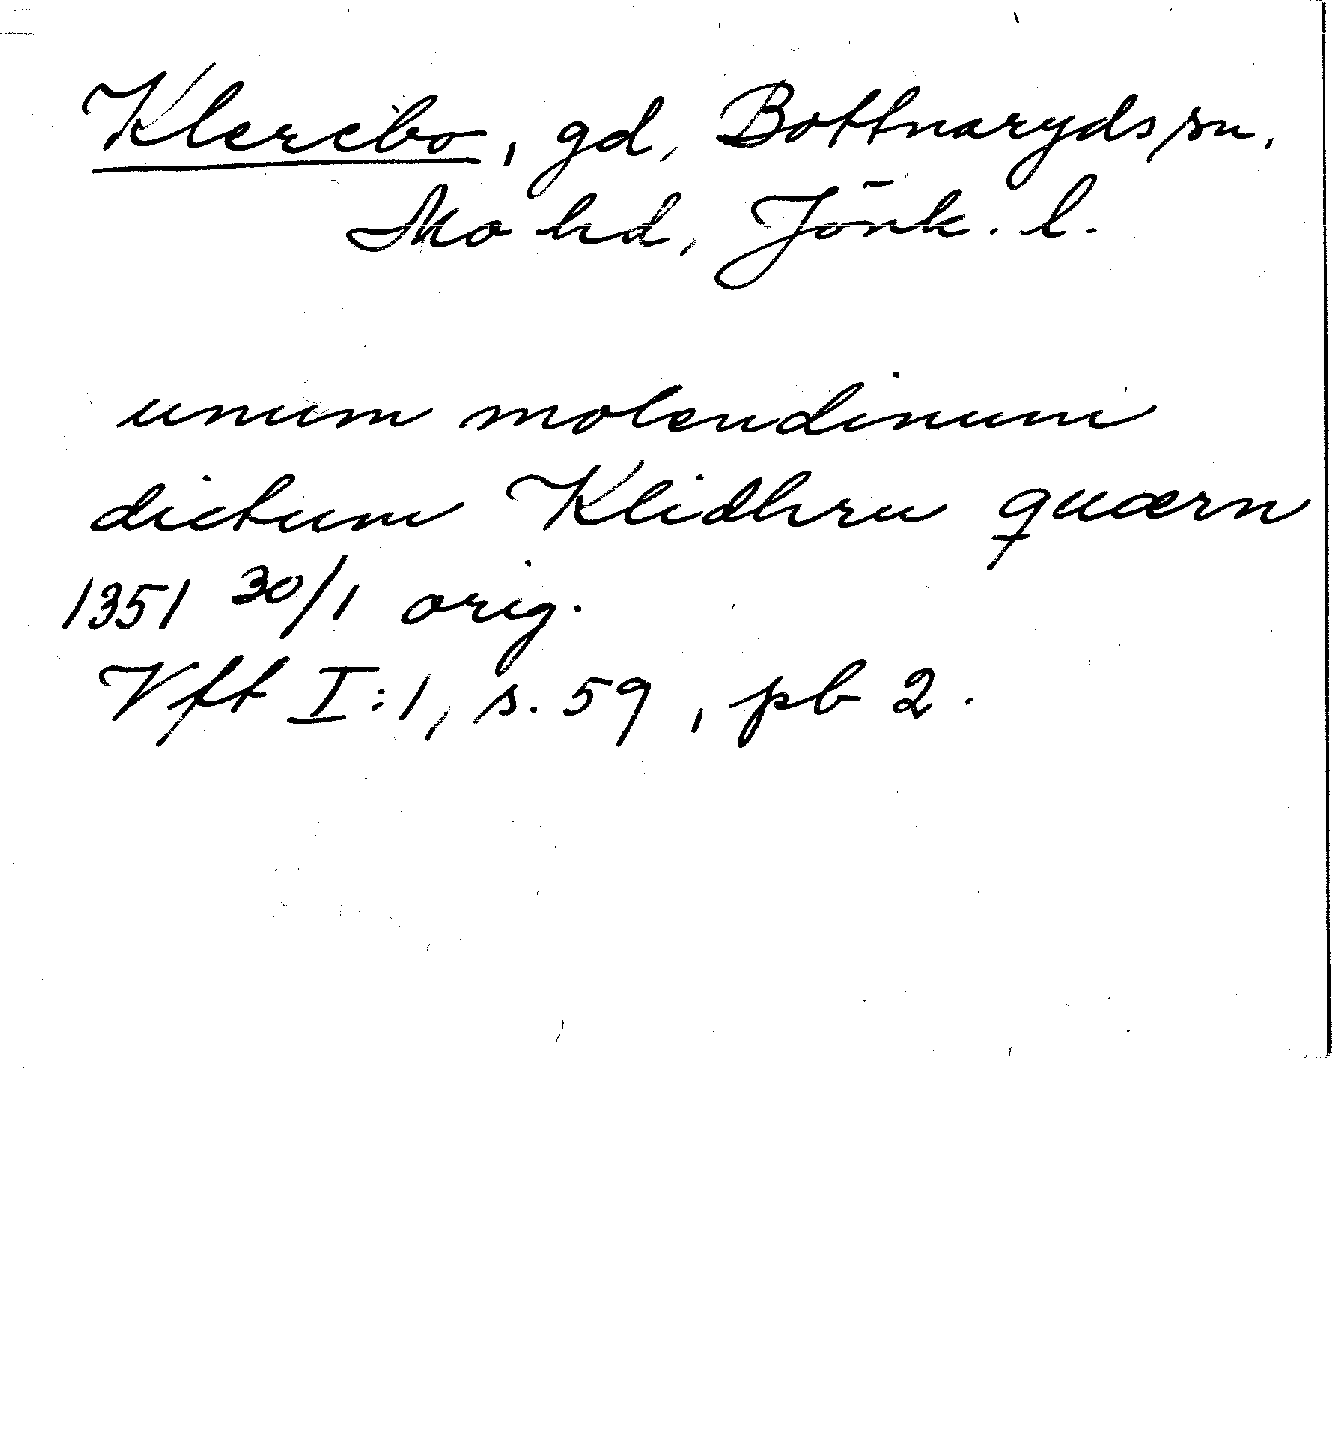 Klerebo, gd, Bottnaryds sn,
Mo hd, Jönk. l.
unum molendinum
dictum Klidhru quærn
1351 30/1 orig.
Vft I:1, s. 59, pb 2.